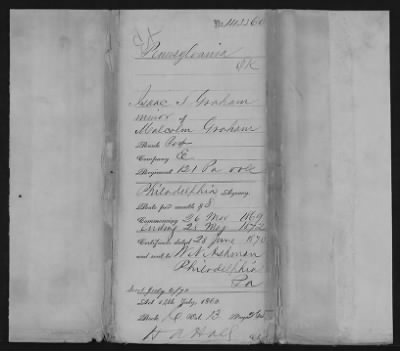 Pennsylvania
Isaac S Graham
minor of
Malcolm Graham
Rank
Company E
Regiment 121 Pa vols
Philadelphia Agency
Rate per month $8
Commencing 26 Mar 1869
Ending 25 May
Certificate dated 28 June 1870
and sent to W. N. Ashman
Philadelphia
Pa
Act 14th July, 1862.
Book Vol. 13 Page
H A Hall